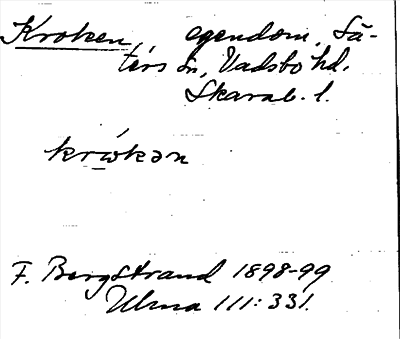 Kroken, egendom, Sä-
ters sn, Vadsbo hd.
Skarab. l.
krẃ̱kən
F. Bergstrand 1898-99
Ulma 111: 331.